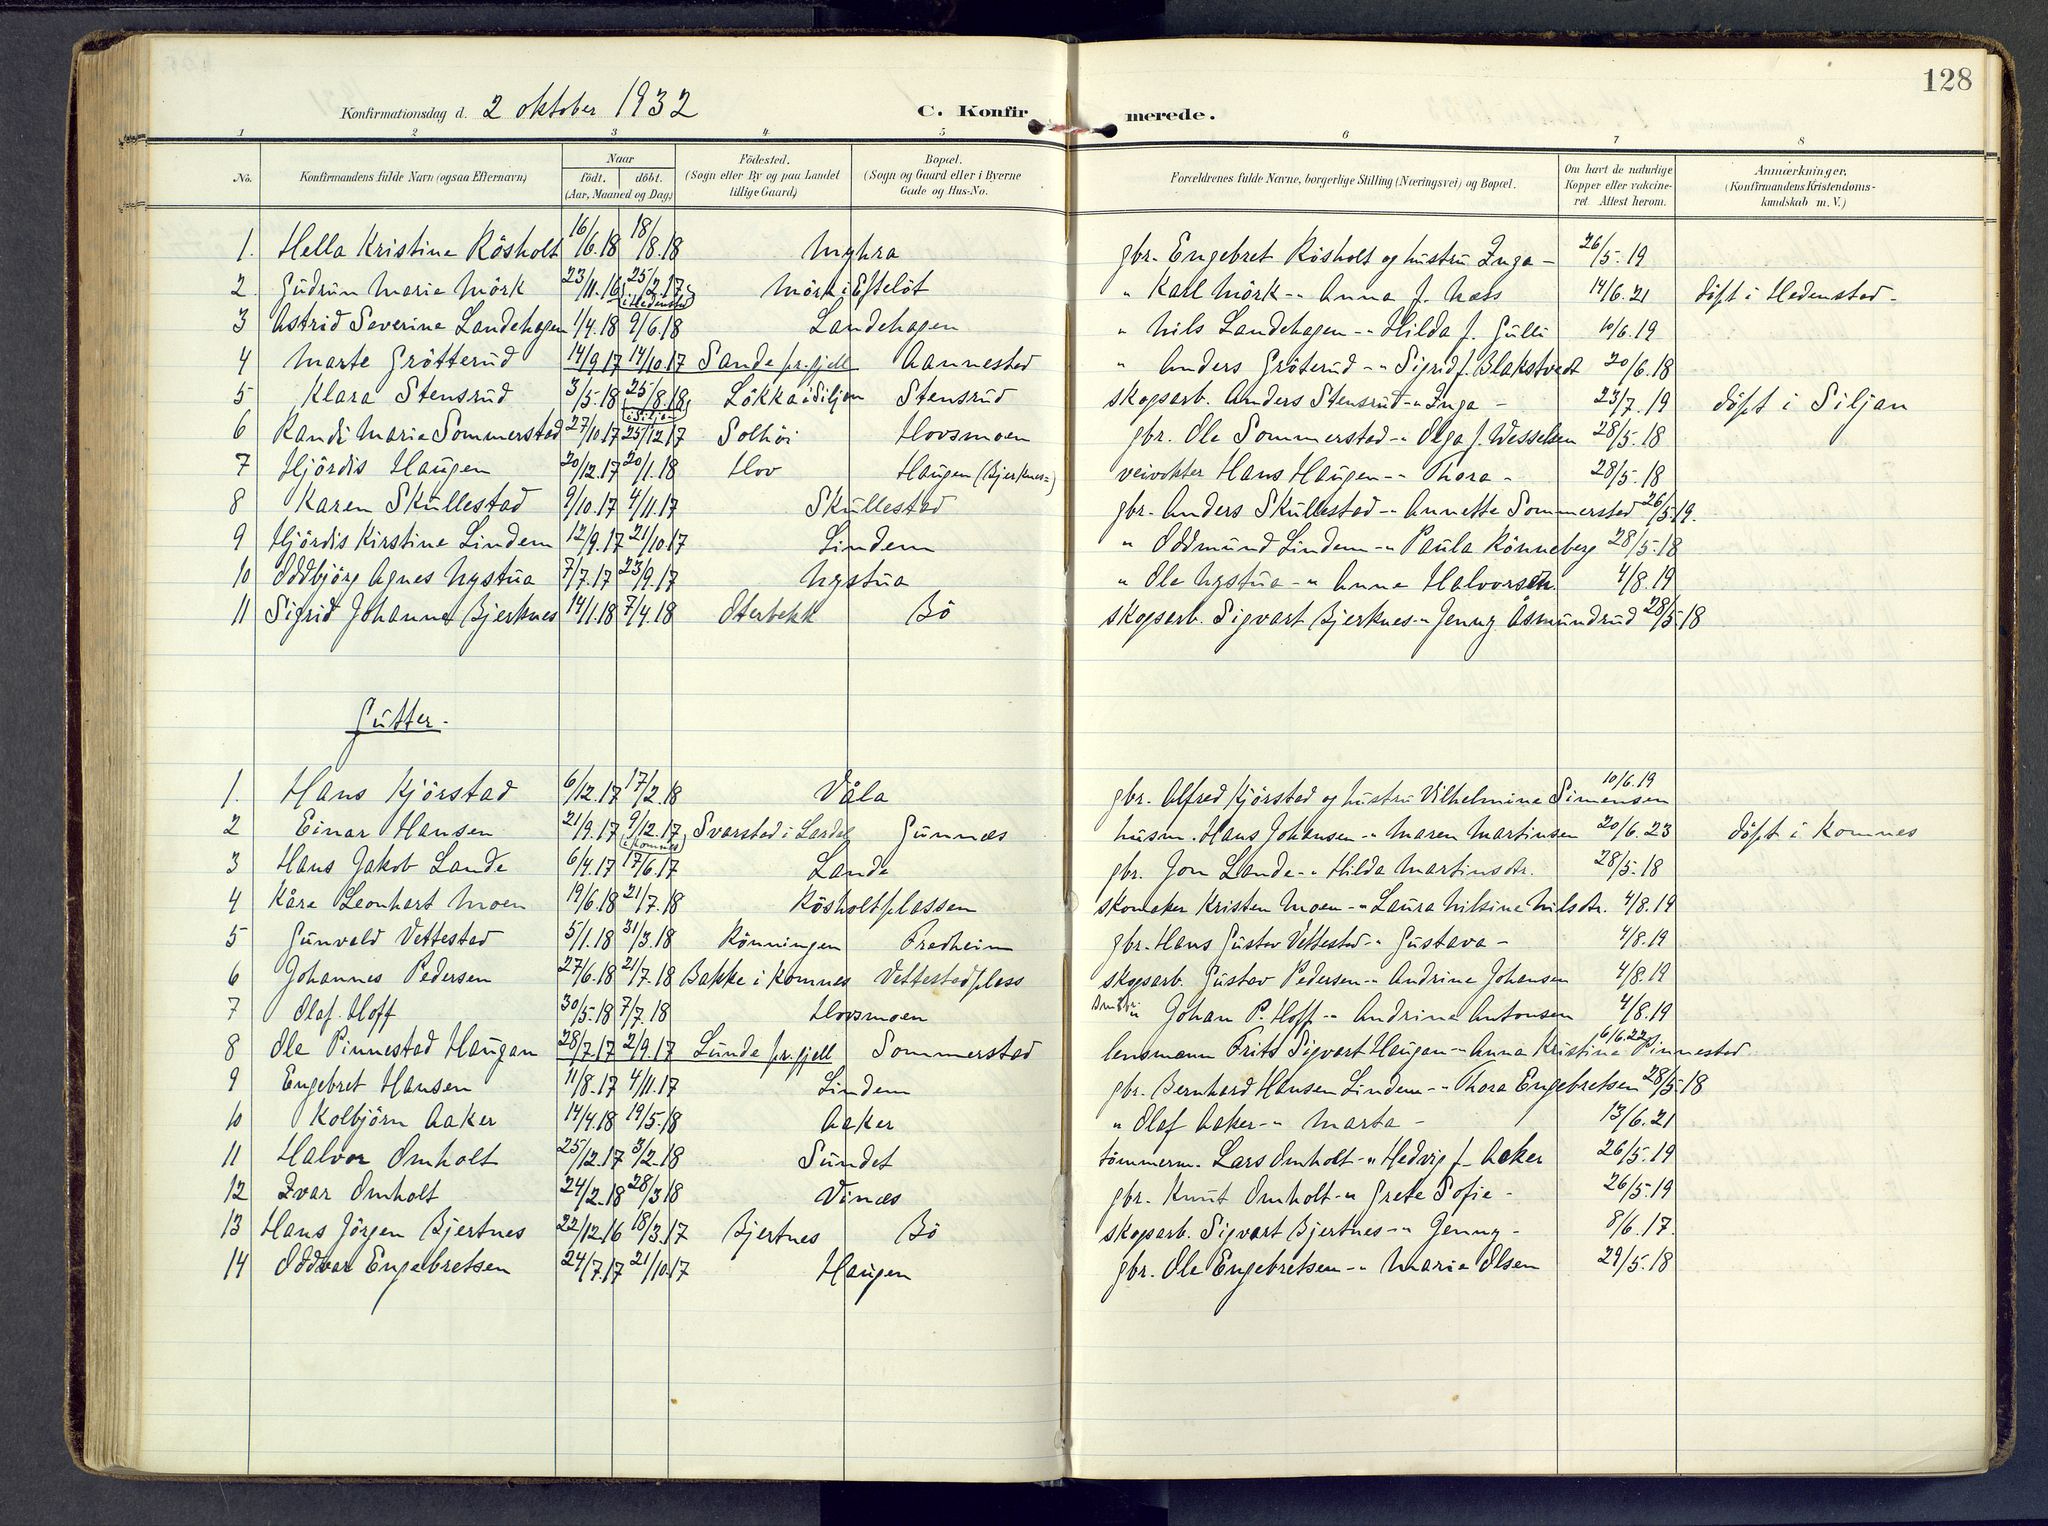 128
Konfirmationsdag d. 2 oktober 1932 C. Konfirmerede.
1 2 3 4 5 6 7 8
No. Konfirmandens fulde Navn (ogsaa Efternavn) Naar født. døbt. (Aar, Maaned og Dag.) Födested. (Sogn eller By og paa Landet tillige Gaard) Bopæl. (Sogn og Gaard eller i Byerne Gade og Hus-No. Forældrenes fulde Navne, borgerlige Stilling (Næringsvei) og Bopæl. Om havt de naturlige Kopper eller vakcineret Attest herom. Anmærkninger, (Konfirmandens Kristendomskundskab m. V.)
1. Hella Kristine Rösholt 16/6.18 18/8.18 Myhra gbr. Engebret Rösholt og hustru Inga - 26/5.19
2. Gudrun Marie Mörk 23/11.16 25/2.17 (i Hedenstad) Mörk i Efteløt " Karl Mörk -"- Anna f. Næss 14/6.21 döpt i Hedenstad -
3 Astrid Severine Landehagen 1/4.18 9/6.18 Landehagen " Nils Landehagen -"- Hilda f. Gulli 10/6.19
4 Marte Grötterud 14/9.17 14/10.17 Sande pr. fjell Aannestad " Anders Gröterud -"- Sigrid f. Blakstvedt 20/6.18
5 Klara Stensrud 3/5.18 25/8.18 (i Siljan) Lökka i Siljan Stensrud skogsarb. Anders Stensrud -"- Inga - 23/7.19 döpt i Siljan
6 Randi Marie Sommerstad 27/10.17 25/12.17 Solhöi Hovsmoen gbr. Ole Sommerstad -"- Olga f. Wesselsen 28/5.18
7 Hjördis Haugen 20/12.17 20/1.18 Hov Haugen (Bjerknes=) veivokter Hans Haugen -"- Thora - 28/5.18
8 Karen Skullestad 9/10.17 4/11.17 Skullestad gbr. Anders Skullestad -"- Annette Sommerstad 26/5.19.
9 Hjördis Kirstine Lindem 12/9.17 21/10.17 Lindem " Oddmund Lindem -"- Paula Rönneberg 28/5.18
10 Oddbjörg Agnes Nystua 7/7.17 23/9.17 Nystua " Ole Nystua -"- Anne Halvorsen. 4/8.19
11 Sigrid Johanne Bjerknes 14/1.18 7/4.18 Oterbekk Bö skogsarb. Sigvart Bjerknes -"- Jenny Åsmundrud 28/5.18
Gutter.
1. Hans Kjörstad 6/12.17 17/2.18 Våla gbr. Alfred Kjörstad og hustru Vilhelmine Simensen 10/6.19
2 Einar Hansen 21/9.17 9/12.17 (i Komnes) Svarstad i Lardal Gunnæs husm. Hans Johansen -"- Maren Martinsen 20/6.23 döpt i Komnes
3 Hans Jakob Lande 6/4.17 17/6.17 Lande gbr. Jon Lande -"- Hilda Martinsdtr. 28/5.18
4 Kåre Leonhart Moen 19/6.18 21/7.18 Rösholtplassen skomaker Kristen Moen -"- Laura Nilsine Nilsdtr. 4/8.19
5 Gunvald Vettestad 5/1.18 31/3.18 Rönningen Fredheim gbr. Hans Gustav Vettestad -"- Gustava - 4/8.19
6 Johannes Pedersen 27/6.18 21/7.18 Bakke i Komnes Vettestadplass skogsarb. Gustav Pedersen -"- Andrine Johansen 4/8.19
7 Olaf Hoff 30/5.18 7/7.18 Hovsmoen Johan P. Hoff -"- Andrine Antonsen 4/8.19
8 Ole Pinnestad Haugan 28/7.17 2/9.17 Lunde pr. fjell Sommerstad lensmann Frits Sigvart Haugan -"- Anna Kristine Pinnestad 6/6.22
9 Engebret Hansen 11/8.17 4/11.17 Lindem gbr. Bernhard Hansen Lindem -"- Thora Engebretsen 28/5.18
10 Kolbjörn Aaker 14/4.18 19/5.18 Aaker " Olaf Aaker -"- Marta - 13/6.21
11 Halvor Omholt 25/12.17 3/2.18 Sundet tömmerm. Lars Omholt -"- Hedvig f. Aaker 26/5.19
12 Ivar Omholt 24/2.18 28/3.18 Vinæs gbr. Knut Omholt -"- Grete Sofie - 26/5.19
13 Hans Jörgen Bjertnes 22/12.16 18/3.17 Bjertnes Bö skogsarb. Sigvart Bjertnes -"- Jenny - 8/6.17.
14 Oddvar Engebretsen 24/7.17 21/10.17 Haugen gbr. Ole Engebretsen -"- Marie Olsen 29/5.18